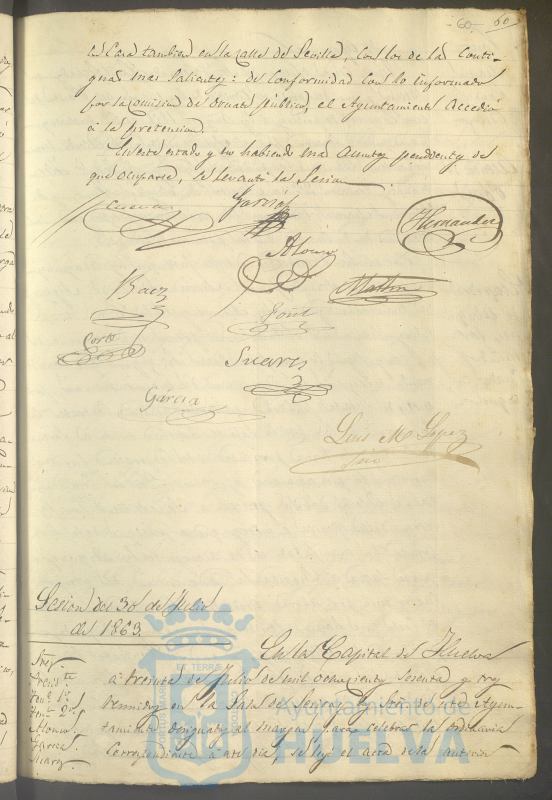 60. 60
su Casa tambien en la calle de Sevilla, con los de la Conti-
gua mas Salientes: de conformidad con lo informado
por la comision de ornato público, el Ayuntamiento accedió
á la pretension.
En este estado y no habiendo mas asuntos pendientes de
que ocuparse, se levantó la Sesion
Garzia
Hernandez
Alonso
Baez
Martin
Cortes
Font
Suarez
Garcia
Luis M. Lopez
Srio
Sesion del 30 de Julio
de 1863.
En la Capital de Huelva
Sres.
Presid.te
Ten.e 1.º
Ten.e 2.º
Alonso
Garcia
Suarez
á treinta de Julio de mil ochocientos sesenta y tres
reunidos en la Sala de Sesiones los Señores de este Ayun-
tamiento designados al margen para celebrar la ordinaria
correspondiente á este dia, se leyó el acta de la anterior
Ayuntamiento de
HUELVA